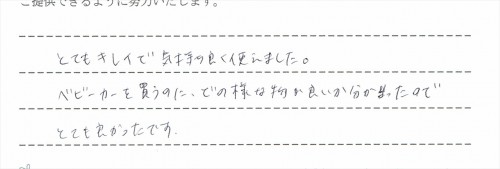 ご提供できるように努力いたします。
とてもキレイで気持の良く使えました。
ベビーカーを買うのに、どの様な物が良いか分かったので
とても良かったです。